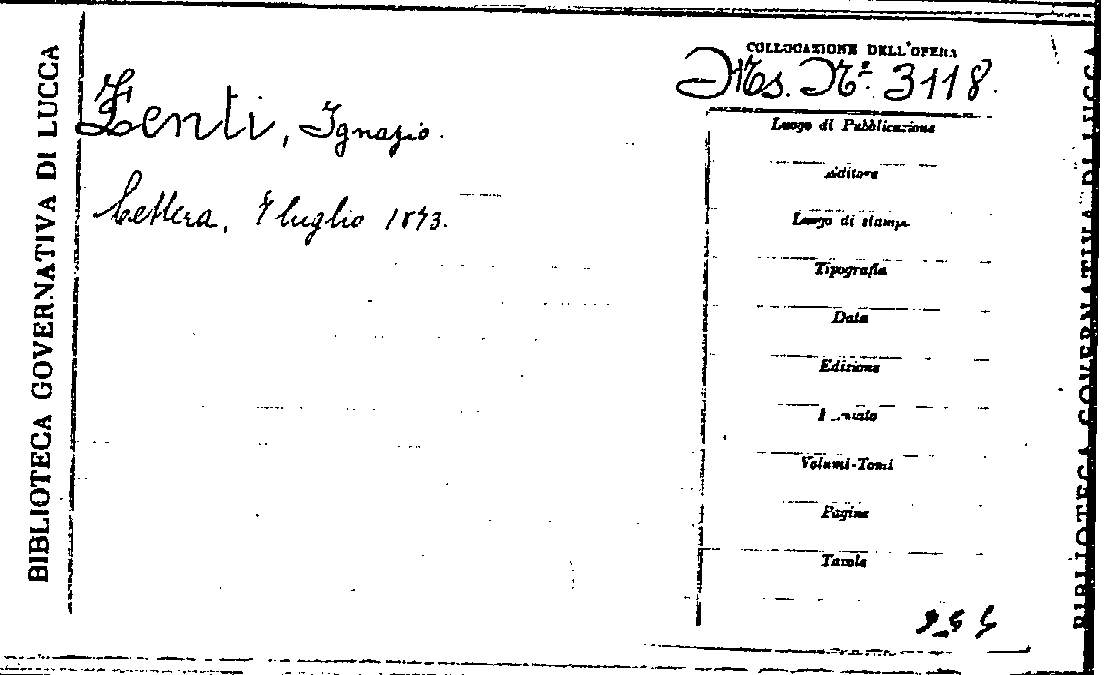 BIBLIOTECA GOVERNATIVA DI LUCCA
Zenti, Ignazio.
Lettera, 7 luglio 1873.
COLLOCAZIONE DELL'OPERA
Ms. Nº 3118.
Luogo di Pubblicazione
Editore
Luogo di stampa
Tipografia
Data
Edizione
Formato
Volumi-Tomi
Pagine
Tavole
BIBLIOTECA GOVERNATIVA DI LUCCA